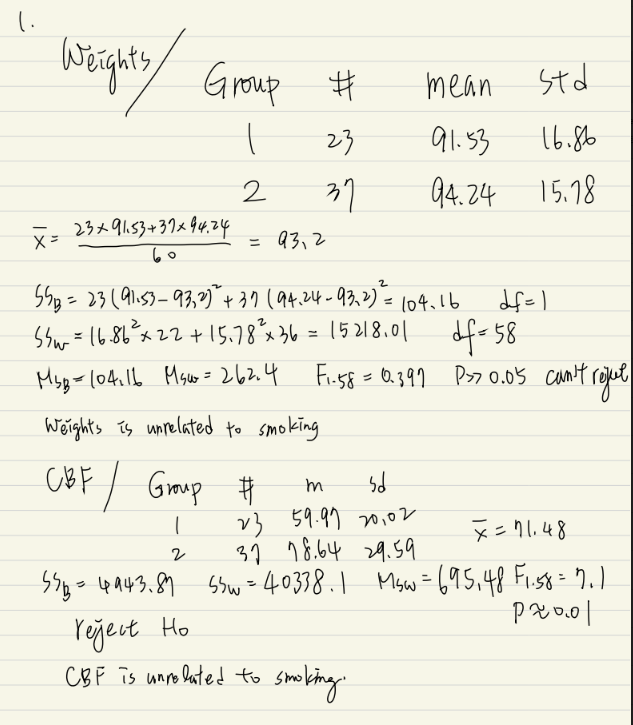 1.
Weights/
Group # mean std
1 23 91.53 16.86
2 37 94.24 15.78
x̄ = (23×91.53+37×94.24)/60 = 93.2
SS_B = 23(91.53-93.2)² + 37(94.24-93.2)² = 104.16 df=1
SS_W = 16.86²×22 + 15.78²×36 = 15218.01 df=58
MS_B=104.16 MS_W=262.4 F1.58 = 0.397 P>>0.05 can't reject
Weights is unrelated to smoking
CBF/
Group # m sd
1 23 59.97 20.02
x̄ = 71.48
2 37 78.64 29.59
SS_B = 4943.87 SS_W = 40338.1 MS_W = 695.48 F1.58 = 7.1
P≈0.01
reject Ho
CBF is unrelated to smoking.